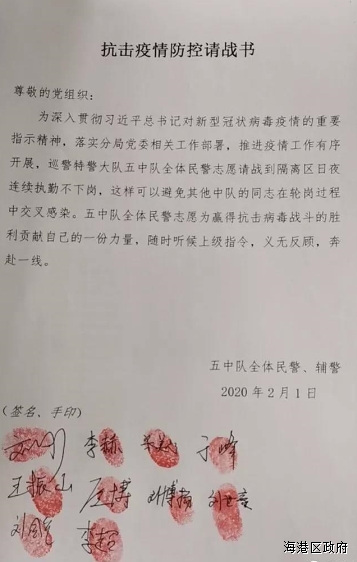 抗击疫情防控请战书
尊敬的党组织：
为深入贯彻习近平总书记对新型冠状病毒疫情的重要
指示精神，落实分局党委相关工作部署，推进疫情工作有序
开展，巡警特警大队五中队全体民警志愿请战到隔离区日夜
连续执勤不下岗，这样可以避免其他中队的同志在轮岗过程
中交叉感染。五中队全体民警志愿为赢得抗击病毒战斗的胜
利贡献自己的一份力量，随时听候上级指令，义无反顾，奔
赴一线。
五中队全体民警、辅警
2020 年 2 月 1 日
（签名、手印）
李栋 于峰
王振山 刘博扬
李超
海港区政府